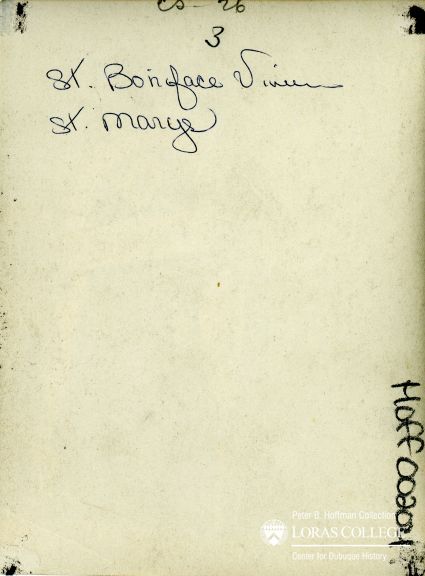 CS-26
3
St. Boniface
St. Marys
Peter B. Hoffman Collection
LORAS COLLEGE
Center for Dubuque History